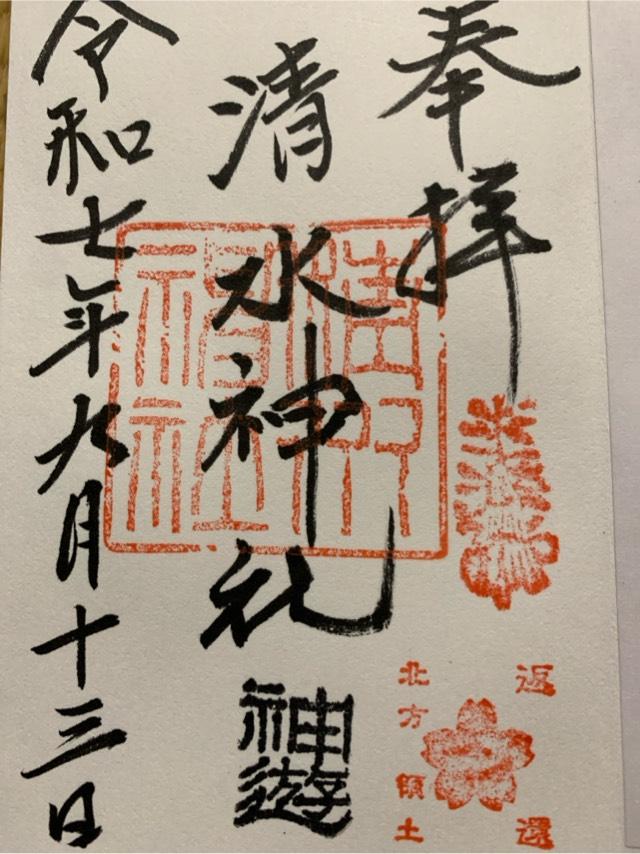 奉拝
清水神礼
神遊
令和七年九月十三日
返還
北方領土